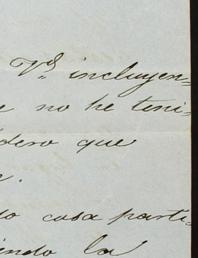 Vd incluyen=
no he teni=
dero que
do cosa parti=
iendo la